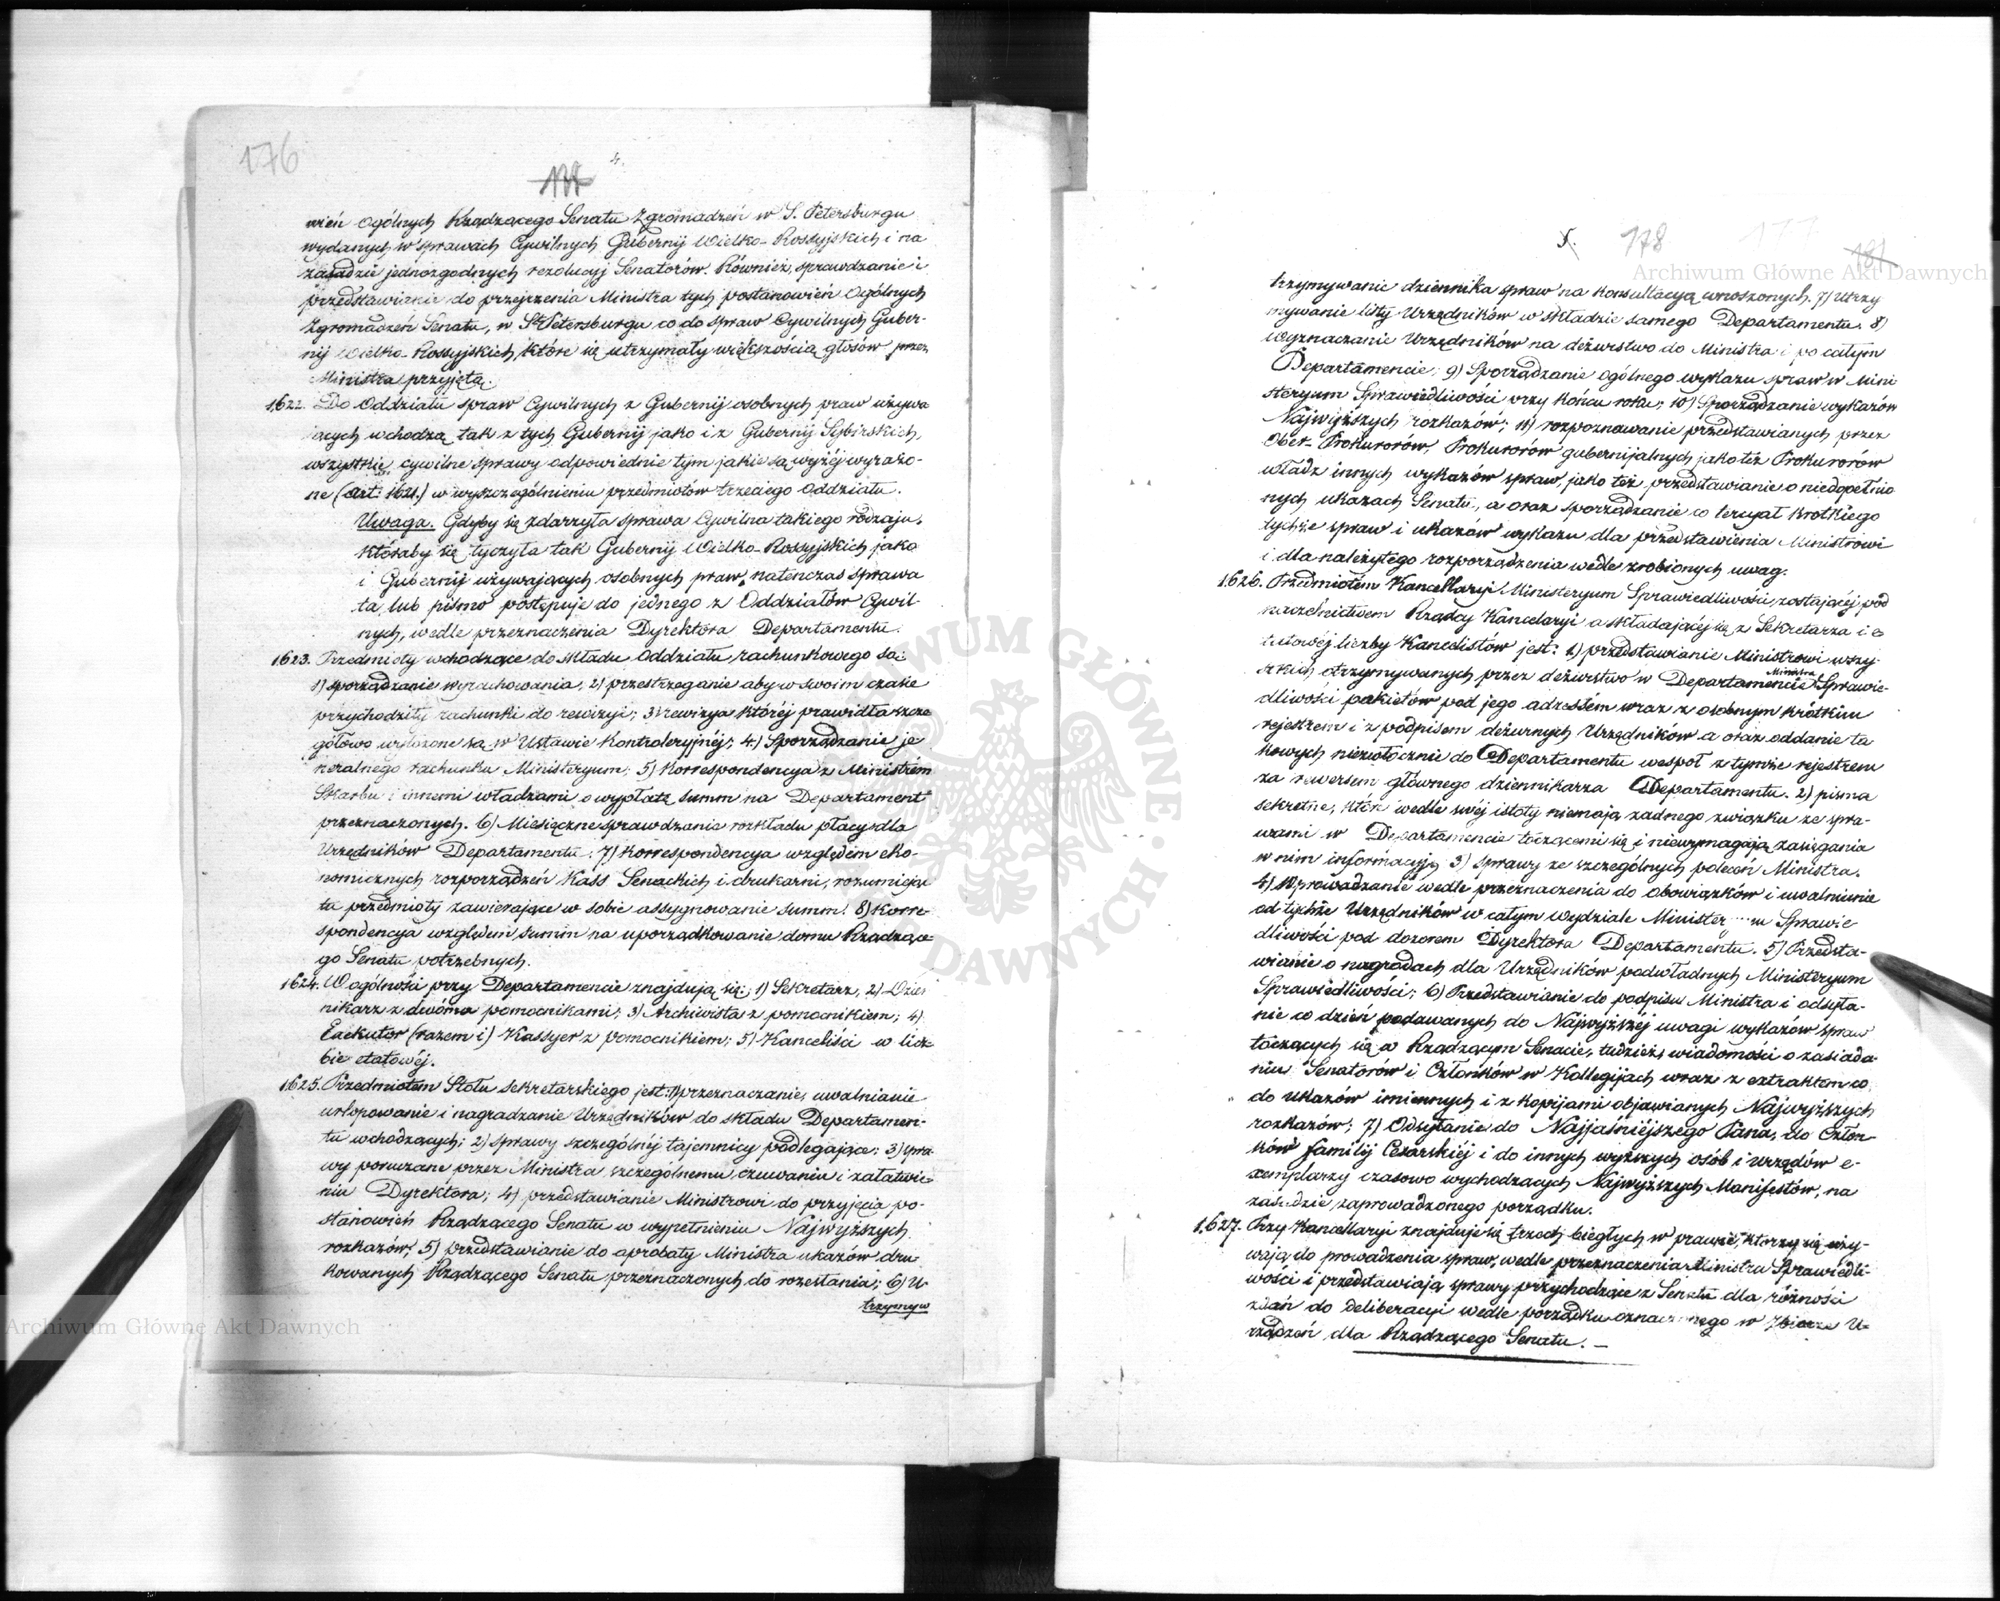 176
4.
wień Ogólnych Rządzącego Senatu Zgromadzeń w S. Petersburgu
wydanych w sprawach Cywilnych Gubernij Wielko-Rossyjskich i na
zasadzie jednozgodnych rezolucyj Senatorów. Również, sprawdzanie i
przedstawianie do przejrzenia Ministra tych postanowień Ogólnych
Zgromadzeń Senatu, w St Petersburgu co do spraw Cywilnych Guber-
nij Wielko-Rossyjskich, które się utrzymały większością głosów przez
Ministra przyjętą.
1622. Do Oddziału spraw Cywilnych z Gubernij osobnych praw używa
jących wchodzą tak z tych Gubernij jako i z Gubernij Sybirskich,
wszystkie cywilne sprawy odpowiednie tym jakie są wyżéj wyrażo-
ne (art: 1621.) w wyszczególnieniu przedmiotów trzeciego Oddziału.
Uwaga. Gdyby się zdarzyła sprawa Cywilna takiego rodzaju,
któraby się tyczyła tak Gubernij Wielko-Rossyjskich jako
i Gubernij używających osobnych praw, natenczas sprawa
ta lub pismo postępuje do jednego z Oddziałów Cywil-
nych, wedle przeznaczenia Dyrektora Departamentu.
1623. Przedmioty wchodzące do składu Oddziału rachunkowego są:
1) sporządzanie wyrachowania; 2) przestrzeganie aby w swoim czasie
przychodziły rachunki do rewizyi; 3) rewizya któréj prawidła szcze
gółowo wyłożone są w Ustawie Kontroleryjnéj; 4.) Sporządzanie je
neralnego rachunku Ministeryum; 5) Korrespondencya z Ministrem
Skarbu i innemi władzami o wypłatę summ na Departament
przeznaczonych. 6) Miesięczne sprawdzanie rozkładu płacy dla
Urzędników Departamentu; 7) Korrespondencya względem eko-
nomicznych rozporządzeń Kass Senackich i drukarni, rozumiejąc
tu przedmioty zawierające w sobie assygnowanie summ! 8) Korre-
spondencya względem summ na uporządkowanie domu Rządzące-
go Senatu potrzebnych.
1624. W ogólności przy Departamencie znajdują się: 1) Sekretarz, 2) Dzien
nikarz z dwóma pomocnikami; 3) Archiwista z pomocnikiem; 4)
Exekutor (razem i) Kassyer z pomocnikiem; 5) Kanceliści w licz-
bie etatowéj.
1625. Przedmiotem Stołu sekretarskiego jest: 1) przeznaczanie, uwalnianie
urlopowanie i nagradzanie Urzędników do składu Departamen-
tu wchodzących; 2) sprawy szczególnéj tajemnicy podlegające; 3) spra
wy poruczane przez Ministra szczególnemu czuwaniu i załatwie-
niu Dyrektora; 4) przedstawianie Ministrowi do przyjęcia po-
stanowień Rządzącego Senatu w wypełnieniu Najwyższych
rozkazów; 5) przedstawianie do aprobaty Ministra ukazów dru
kowanych Rządzącego Senatu przeznaczonych do rozesłania; 6) U-
trzymyw
5. 178 177
181
trzymywanie dziennika spraw na konsultacyą wnoszonych. 7) Utrzy
mywanie listy Urzędników w składzie samego Departamentu. 8)
Wyznaczanie Urzędników na deżurstwo do Ministra i po całym
Departamencie; 9) Sporządzanie ogólnego wykazu spraw w Mini
steryum Sprawiedliwości przy końcu roku; 10) Sporządzanie wykazów
Najwyższych rozkazów; 11) rozpoznawanie przedstawianych przez
Ober-Prokurorów, Prokurorów gubernijalnych jako też Prokurorów
władz innych wykazów spraw, jako też przedstawianie o niedopełnio
nych ukazach Senatu, a oraz sporządzanie co tercyał krótkiego
tychże spraw i ukazów wykazu dla przedstawienia Ministrowi
i dla należytego rozporządzenia wedle zrobionych uwag.
1626. Przedmiotem Kancellaryi Ministeryum Sprawiedliwości, zostającéj pod
naczelnictwem Rządcy Kancelaryi a składającéj się z Sekretarza i e
tatowéj liczby Kancelistów jest: 1) przedstawianie Ministrowi wszy
stkich otrzymywanych przez deżurstwo w Departamencie Ministra Sprawie-
dliwości pakietów pod jego adressem wraz z osobnym krótkim
rejestrem i z podpisem deżurnych Urzędników a oraz oddanie ta
kowych niezwłocznie do Departamentu wespół z tymże rejestrem
za rewersem głównego dziennikarza Departamentu. 2) pisma
sekretne, które wedle swéj istoty niemają żadnego związku ze spra-
wami w Departamencie toczącemi się i niewymagają zasięgania
w nim informacyj; 3) sprawy ze szczególnych poleceń Ministra.
4) Wprowadzanie wedle przeznaczenia do obowiązków i uwalnianie
od tychże Urzędników w całym wydziale Minister um Sprawie
dliwości pod dozorem Dyrektora Departamentu. 5) Przedsta-
wianie o nagrodach dla Urzędników podwładnych Ministeryum
Sprawiedliwości; 6) Przedstawianie do podpisu Ministra i odsyła-
nie co dzień podawanych do Najwyższéj uwagi wykazów spraw
toczących się w Rządzącym Senacie, tudzież, wiadomości o zasiada-
niu Senatorów i Członków w Kollegijach wraz z extraktem co
do ukazów imiennych i z kopijami objawianych Najwyższych
rozkazów; 7) Odsyłanie do Najjaśniejszego Pana, do Człon-
ków familij Cesarskiéj i do innych wyższych osób i urzędów e-
xemplarzy czasowo wychodzących Najwyższych Manifestów, na
zasadzie zaprowadzonego porządku.
1627. Przy Kancellaryi znajduje się trzech biegłych w prawie, którzy się uży-
wają do prowadzenia spraw, wedle przeznaczenia Ministra Sprawiedli-
wości i przedstawiają sprawy przychodzące z Senatu dla różności
zdań do deliberacyi wedle porządku oznaczonego w Zbiorze U-
rządzeń dla Rządzącego Senatu. —
Archiwum Główne Akt Dawnych
Archiwum Główne Akt Dawnych
ARCHIWUM GŁÓWNE AKT DAWNYCH